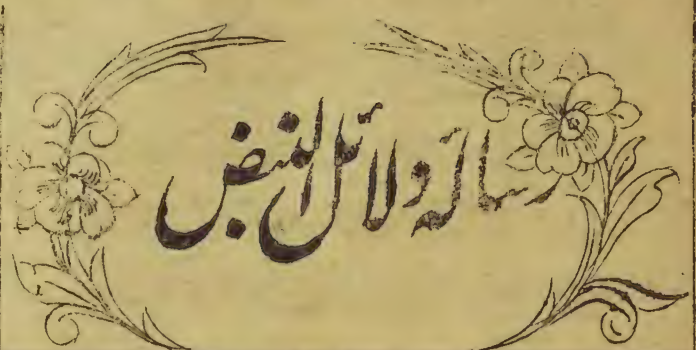 رسالہ دلائل النبض